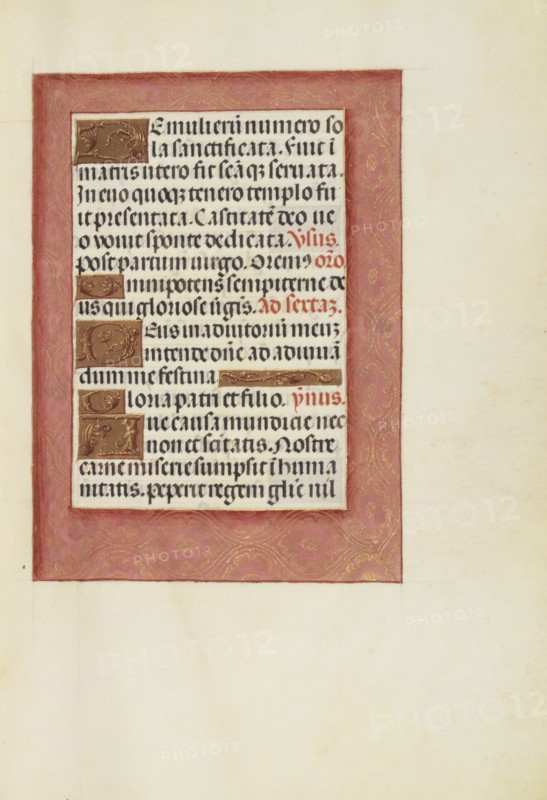 DE mulierū numero so
la sanctificata. Fuit ī
matris utero fit scā qʒ seruata.
In euo quoqʒ tenero templo fu
it presentata. Castitatē deo ue
o vouit sponte dedicata. Vsus.
post partum uirgo. Oremꝰ orō.
Omnipotens sempiterne de
us qui gloriose ūgīs. Ad sextaʒ.
DEus in adiutoriū meuʒ
intende dn̄e ad adiuuā
dum me festina
Gloria patri et filio. ȳnus.
Que causa mundicie nec
non et scītatis. Nostre
carne miserie sumpsit ī huma
nitatis. peperit regem glīe nil
PHOTO12